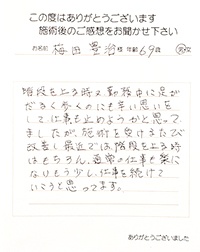 この度はありがとうございます
施術後のご感想をお聞かせ下さい
お名前 梅田 豊治 様 年齢 69歳
階段を上る時や勤務中に足が
だるく歩くのにも辛い思いをし
て仕事も辞めようかと思って
ましたが、施術を受けるたび
改善し最近では階段を上る時
はもちろん、通常の仕事も楽に
なりもう少し、仕事を続けて
いこうと思ってます。
ありがとうございました